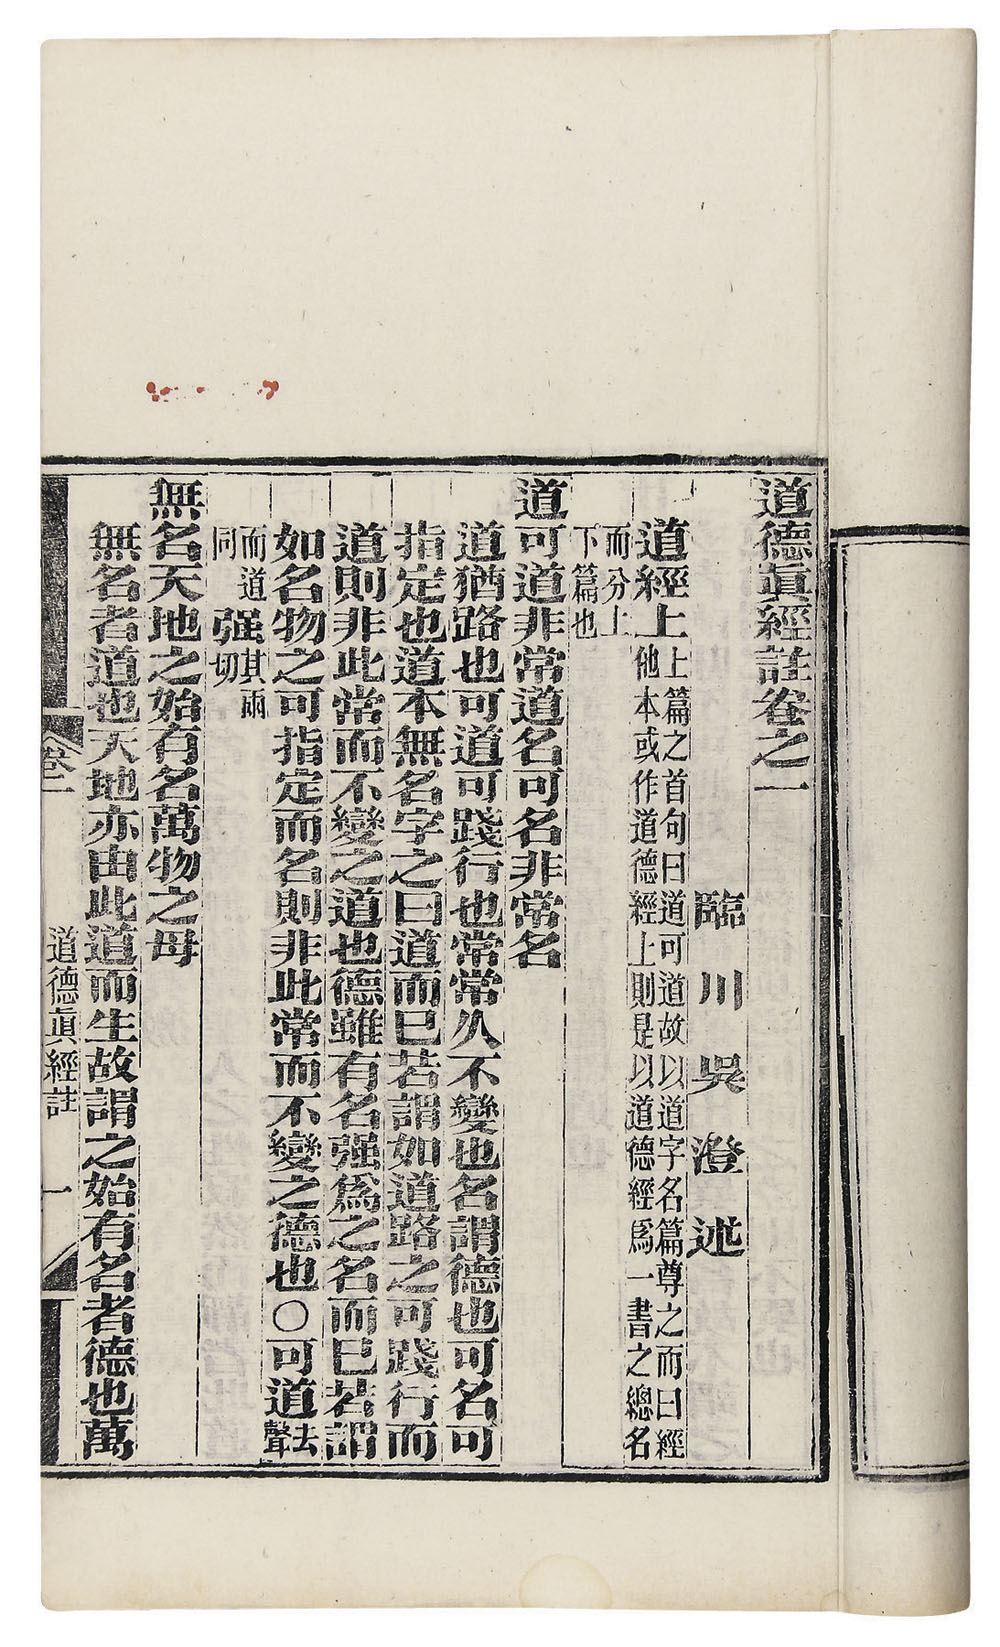 道德眞經註卷之一
臨川吳澄述
道經上上篇之首句曰道可道故以道字名篇尊之而曰經
他本或作道德經上則是以道德經爲一書之總名
而分上
下篇也
道可道非常道名可名非常名
道猶路也可道可踐行也常常久不變也名謂德也可名可
指定也道本無名字之曰道而已若謂如道路之可踐行而
道則非此常而不變之道也德雖有名强爲之名而已若謂
如名物之可指定而名則非此常而不變之德也○可道去
聲
而道其兩
同强切
無名天地之始有名萬物之母
無名者道也天地亦由此道而生故謂之始有名者德也萬
卷一
道德眞經註
一